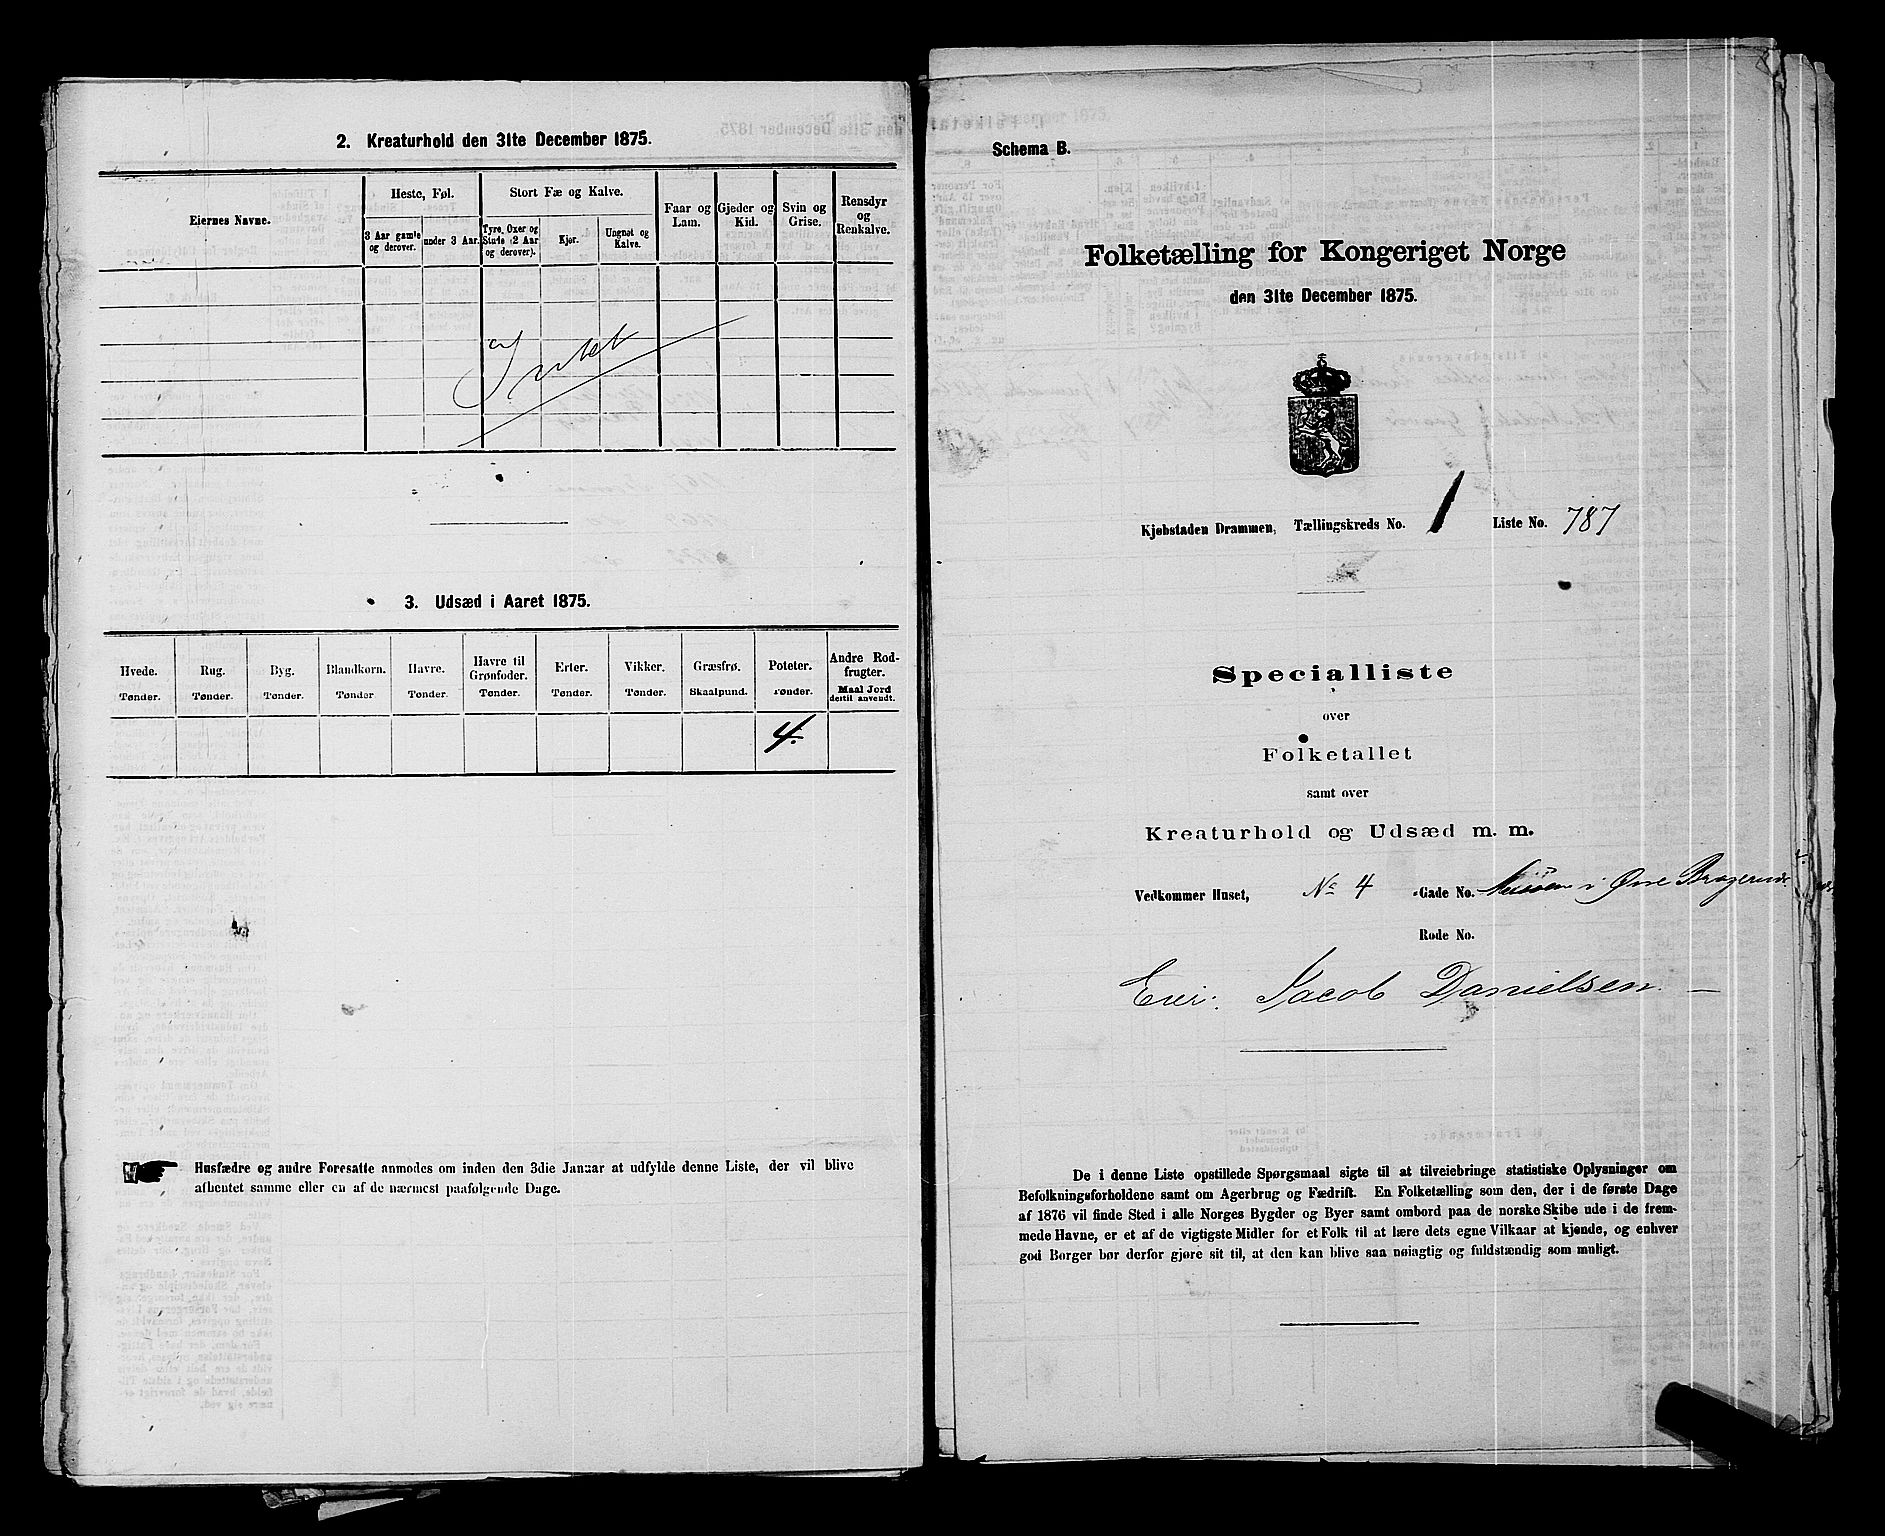 2. Kreaturhold den 31te December 1875.
Eiernes Navne.
Heste, Føl.
3 Aar gamle og derover.
under 3 Aar.
Stort Fæ og Kalve.
Tyre, Oxer og Stude (2 Aar og derover).
Kjør.
Ungnøt og Kalve.
Faar og Lam.
Gjeder og Kid.
Svin og Grise.
Rensdyr og Renkalve.
Intet
3. Udsæd i Aaret 1875.
Hvede. Rug. Byg. Blandkorn. Havre. Havre til Grønfoder. Erter. Vikker. Græsfrø. Poteter. Andre Rodfrugter.
Tønder. Tønder. Tønder. Tønder Tønder. Tønder. Tønder. Tønder. Skaalpund. Tønder. Maal Jord dertil anvendt.
4.
Husfædre og andre Foresatte anmodes om inden den 3die Januar at udfylde denne Liste, der vil blive
afhentet samme eller en af de nærmest paafølgende Dage.
Schema B.
Folketælling for Kongeriget Norge
den 31te December 1875.
Kjøbstaden Drammen, Tællingskreds No. 1 Liste No. 787
Specialliste
over
Folketallet
samt over
Kreaturhold og Udsæd m. m.
Vedkommer Huset, No 4 Gade No. i Øvre
Rode No.
Eier: Jacob Danielsen.
De i denne Liste opstillede Spørgsmaal sigte til at tilveiebringe statistiske Oplysninger om
Befolkningsforholdene samt om Agerbrug og Fædrift. En Folketælling som den, der i de første Dage
af 1876 vil finde Sted i alle Norges Bygder og Byer samt ombord paa de norske Skibe ude i de frem-
mede Havne, er et af de vigtigste Midler for et Folk til at lære dets egne Vilkaar at kjende, og enhver
god Borger bør derfor gjøre sit til, at den kan blive saa nøiagtig og fuldstændig som muligt.